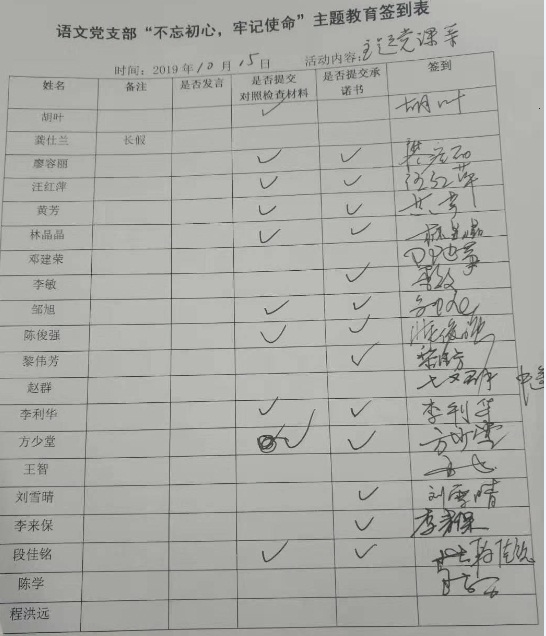 语文党支部“不忘初心，牢记使命”主题教育签到表
时间：2019年10月15日 活动内容：党课
姓名 备注 是否发言 是否提交对照检查材料 是否提交承诺书 签到
胡叶 ✓ 胡叶
龚仕兰 长假
廖容丽 ✓ ✓
汪红萍 ✓ ✓ 汪红萍
黄芳 ✓ ✓
林晶晶 ✓ ✓ 林晶晶
邓建荣
李敏 ✓ 李敏
邹旭 ✓ ✓
陈俊强 ✓ ✓ 陈俊强
黎伟芳 ✓
赵群
李利华 ✓ ✓ 李利华
方少堂 ✓ ✓ 方少堂
王智
刘雪晴 ✓ 刘雪晴
李来保 ✓ 李来保
段佳铭 ✓ ✓
陈学
程洪远